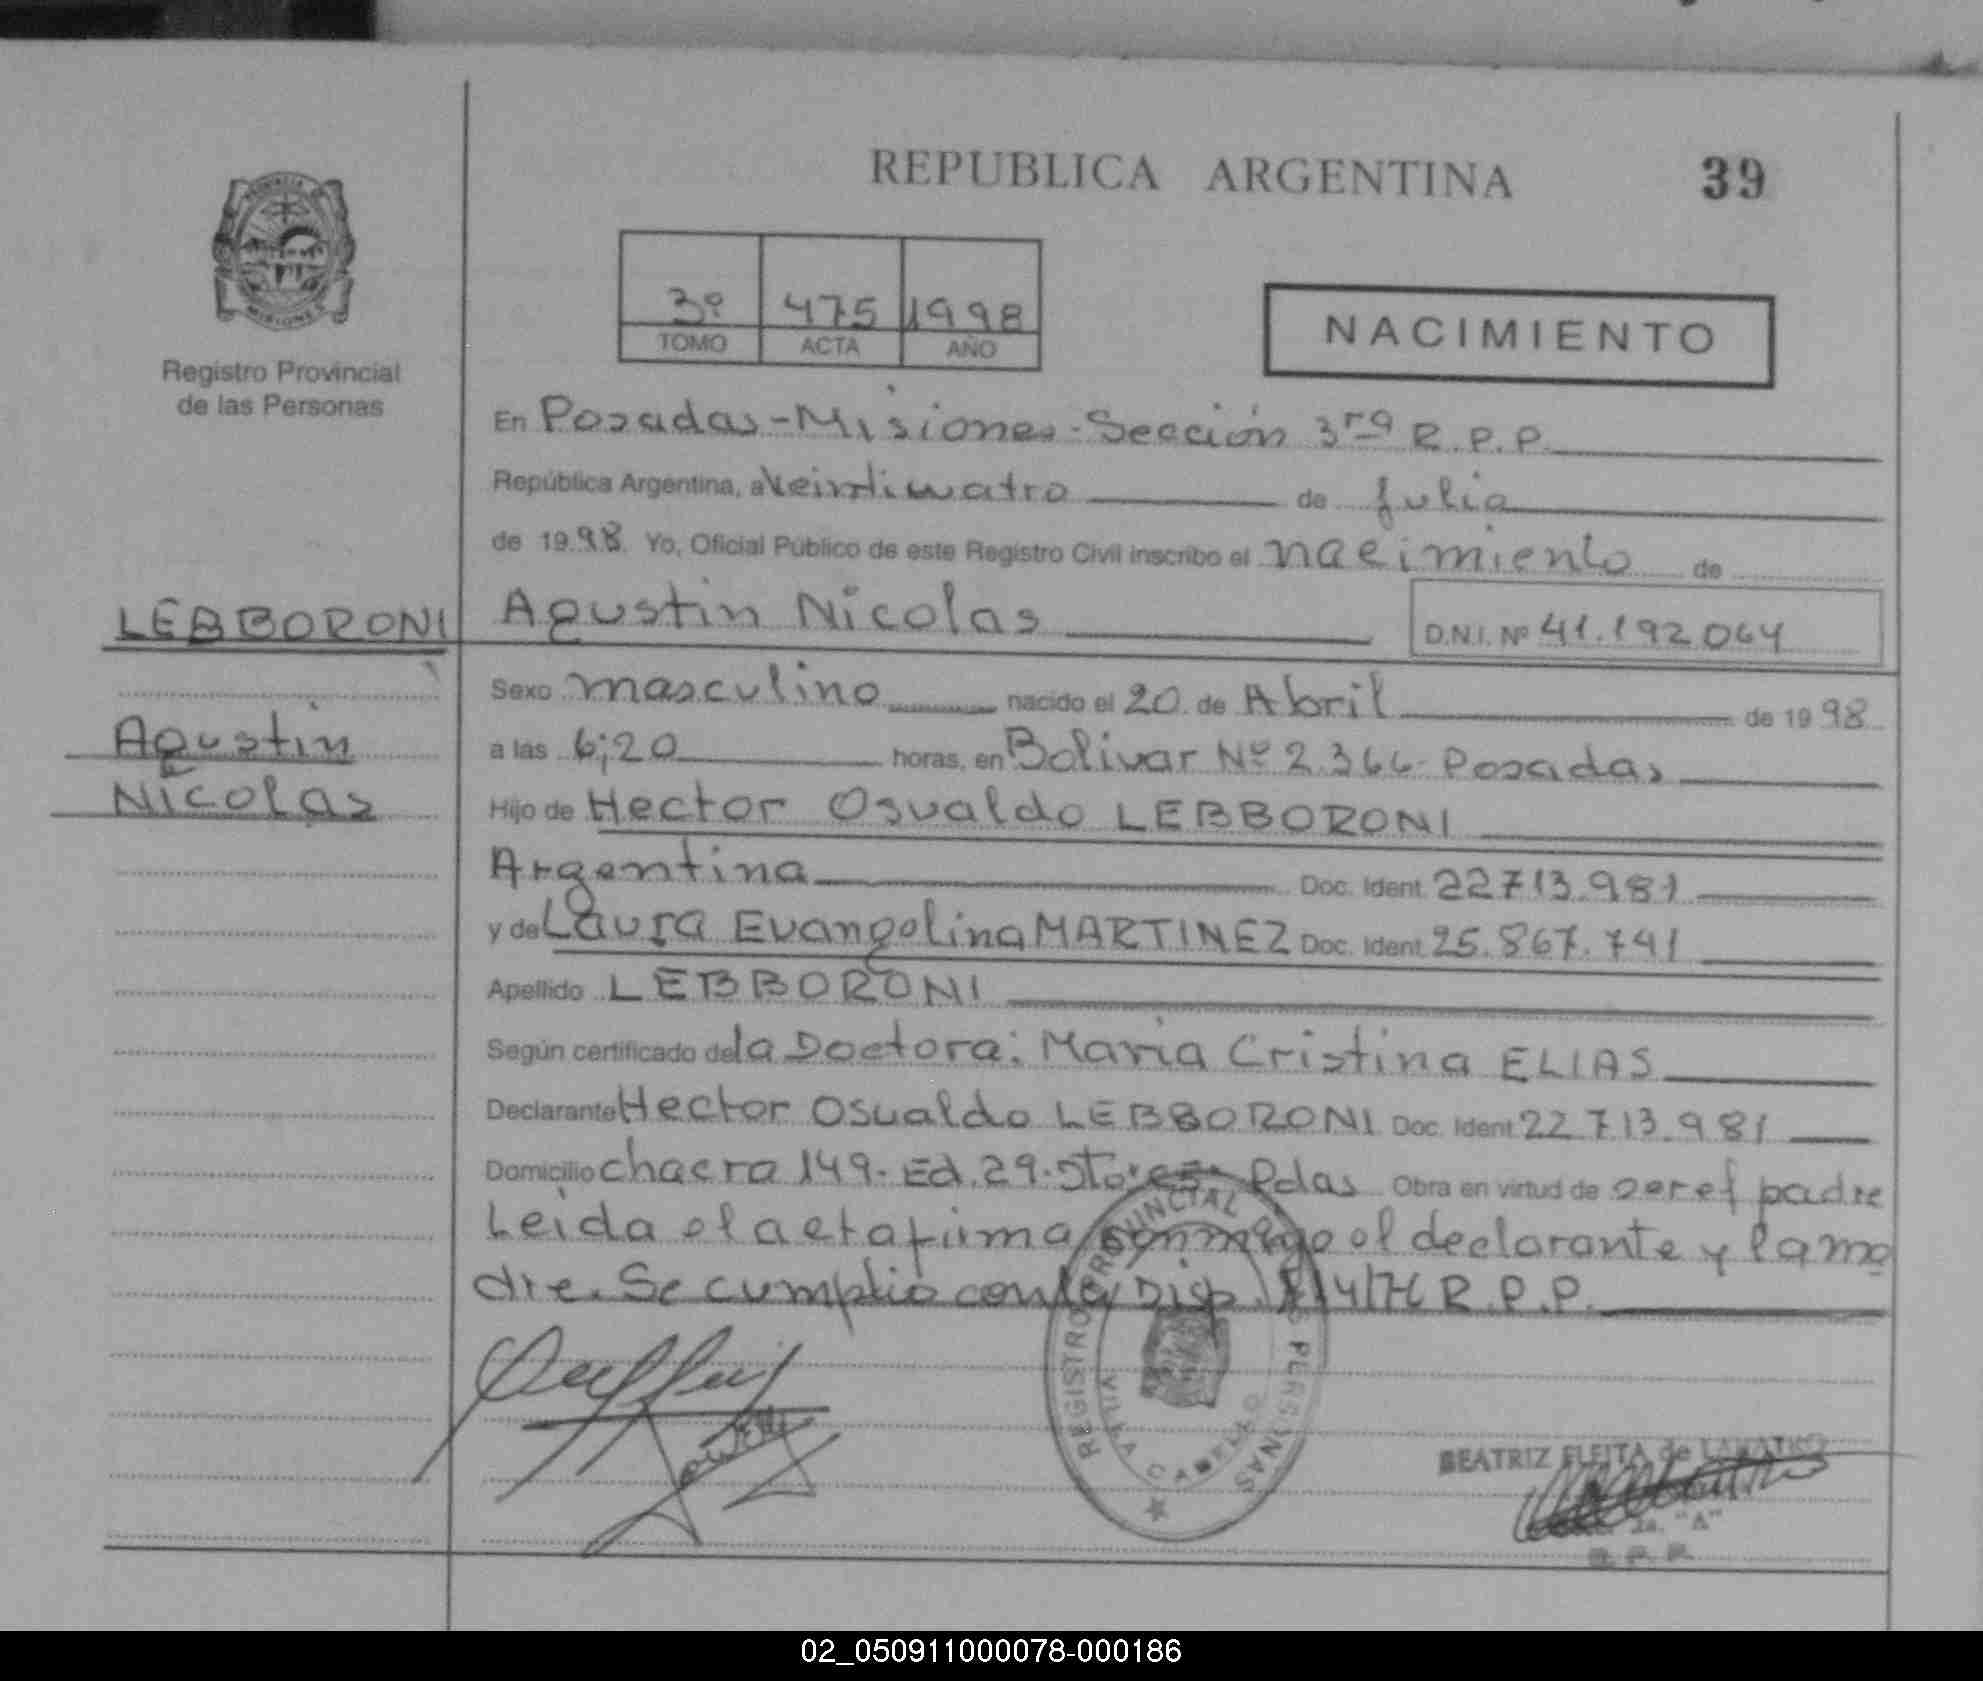 REPUBLICA ARGENTINA 39
3º 475 1998
TOMO ACTA AÑO
NACIMIENTO
PROVINCIA DE
MISIONES
Registro Provincial
de las Personas
En Posadas-Misiones-Sección 3ra R.P.P.
República Argentina, a Veinticuatro de Julio
de 1998 Yo, Oficial Público de este Registro Civil inscribo el nacimiento de
LEBBORONI Agustin Nicolas D.N.I. Nº 41.192064
Sexo masculino nacido el 20 de Abril de 1998
Agustin
a las 6;20 horas, en Bolivar Nº 2.366- Posadas
Nicolas
Hijo de Hector Osvaldo LEBBORONI
Argentina Doc. Ident. 22713.981
y de Laura Evangelina MARTINEZ Doc. Ident. 25.867.741
Apellido LEBBORONI
Según certificado de la Doctora: Maria Cristina ELIAS
Declarante Hector Osvaldo LEBBORONI Doc. Ident. 22713.981
Domicilio chacra 149- Ed. 29- Pdas Obra en virtud de ser el padre
Leida el acta firma conmigo el declarante y la ma
dre. Se cumplio con la Disp. R.P.P.
REGISTRO PROVINCIAL PERSONAS
BEATRIZ FLEITA de
2a. "A"
R. P. P.
02_050911000078-000186